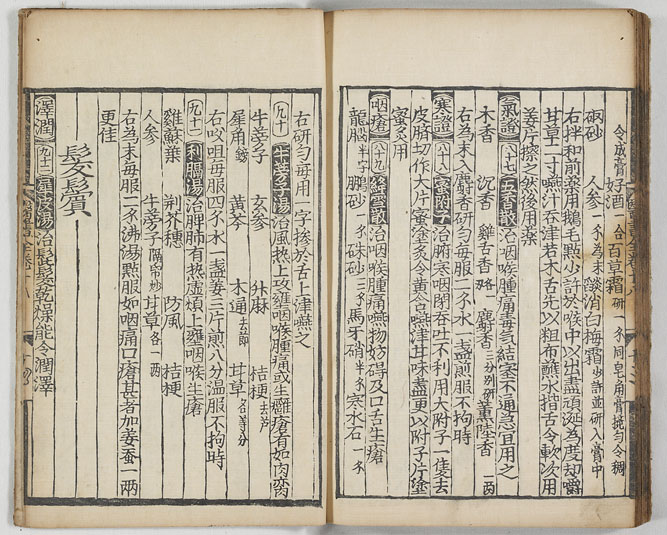 令成膏 好酒一合 百草霜研一多同皂角膏攪匀令稠
硇砂 人參一多為末 焰消 白梅霜少許並研入膏中
右拌和前藥用鵝毛點少許於喉中以出盡頑涎為度却嚼
甘草二寸嚥汁吞津若木舌先以粗布蘸水揩舌令軟次用
姜片擦之然後用藥
氣證 八十七 五香散 治咽喉腫痛毒氣結塞不通急宜用之
木香 沉香 雞舌香各 麝香三分別研 薰陸香一兩
右為末入麝香研匀每服二多水一盞煎服不拘時
寒證 八十八 蜜附子 治腑寒咽閉吞吐不利用大附子一隻去
皮臍切作大片蜜塗炙令黄含嚥津甘味盡更以附子片塗
蜜炙用
咽瘡 八十九 散 治咽喉腫痛嚥物妨碍及口舌生瘡
龍腦半字 鵬砂一多 硃砂三多 馬牙硝半多 寒水石一多
右研匀每用一字摻於舌上津嚥之
九十 牛蒡子湯 治風熱上攻壅咽喉腫痛或生癰瘡有如肉臠
牛蒡子 玄參 升麻 桔梗去芦
犀角鎊 黄芩 木通去節 甘草各等分
右㕮咀每服四多水一盞姜三片煎八分温服不拘時
九十一 利膈湯 治脾肺有熱虛煩上壅咽喉生瘡
雞蘇葉 荆芥穗 防風 桔梗
人參 牛蒡子隔帋炒 甘草各一兩
右為末每服二多沸湯點服如咽痛口瘡甚者加姜蚕一兩
更佳
髮鬢
澤潤 九十二 皮湯 治髭髮乾燥能令潤澤